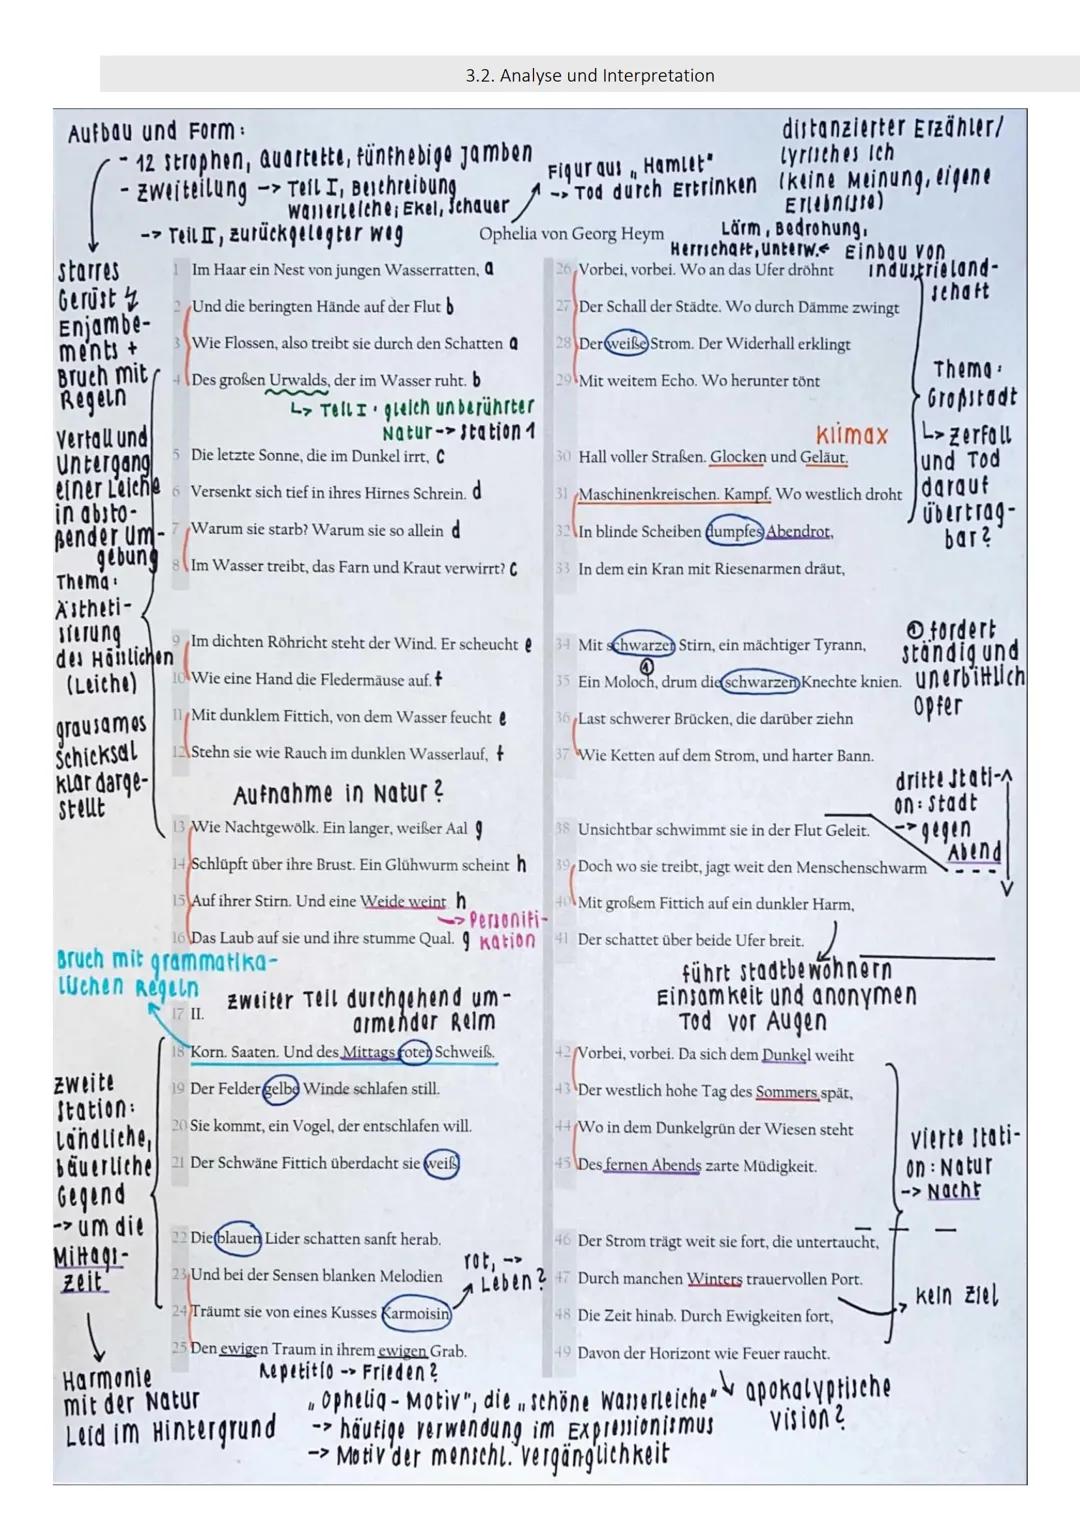 3.2. Analyse und Interpretation
Aufbau und Form:
- 12 Strophen, Quartette, fünfhebige Jamben
- Zweiteilung -> Teil I, Beschreibung
Wasserleiche; Ekel, Schauer
-> Teil II, zurückgelegter Weg
Figur aus „Hamlet"
-> Tod durch Ertrinken
distanzierter Erzähler/
lyrisches Ich
(keine Meinung, eigene
Erlebnisse)
Ophelia von Georg Heym
Lärm, Bedrohung,
Herrschaft, unterw.
Einbau von
Industrieland-
schaft
starres
Gerüst
Enjambe-
ments +
Bruch mit
Regeln
1 Im Haar ein Nest von jungen Wasserratten, a
2 Und die beringten Hände auf der Flut b
3 Wie Flossen, also treibt sie durch den Schatten a
4 Des großen Urwalds, der im Wasser ruht. b
↳ Teil I: gleich unberührter
Natur -> Station 1
Verfall und
Untergang
einer Leiche
in absto-
ßender Um-
gebung
5 Die letzte Sonne, die im Dunkel irrt, c
6 Versenkt sich tief in ihres Hirnes Schrein. d
7 Warum sie starb? Warum sie so allein d
8 Im Wasser treibt, das Farn und Kraut verwirrt? c
Thema:
Ästheti-
sierung
des Hässlichen
(Leiche)
9 Im dichten Röhricht steht der Wind. Er scheucht e
10 Wie eine Hand die Fledermäuse auf. f
11 Mit dunklem Fittich, von dem Wasser feucht e
12 Stehn sie wie Rauch im dunklen Wasserlauf, f
grausames
Schicksal
klar darge-
stellt
Aufnahme in Natur?
13 Wie Nachtgewölk. Ein langer, weißer Aal g
14 Schlüpft über ihre Brust. Ein Glühwurm scheint h
15 Auf ihrer Stirn. Und eine Weide weint h
-> Personifi-
kation
16 Das Laub auf sie und ihre stumme Qual. g
Bruch mit grammatika-
lischen Regeln
Zweiter Teil durchgehend um-
armender Reim
17 II.
18 Korn. Saaten. Und des Mittags roter Schweiß.
19 Der Felder gelbe Winde schlafen still.
20 Sie kommt, ein Vogel, der entschlafen will.
21 Der Schwäne Fittich überdacht sie weiß
zweite
Station:
Ländliche,
bäuerliche
Gegend
-> um die
Mittags-
zeit
22 Die blauen Lider schatten sanft herab.
23 Und bei der Sensen blanken Melodien
24 Träumt sie von eines Kusses Karmoisin
25 Den ewigen Traum in ihrem ewigen Grab.
rot, ->
Leben?
Repetitio -> Frieden?
Harmonie
mit der Natur
Leid im Hintergrund
„Ophelia-Motiv", die „schöne Wasserleiche"
-> häufige Verwendung im Expressionismus
-> Motiv der menschl. Vergänglichkeit
26 Vorbei, vorbei. Wo an das Ufer dröhnt
27 Der Schall der Städte. Wo durch Dämme zwingt
28 Der weiße Strom. Der Widerhall erklingt
29 Mit weitem Echo. Wo herunter tönt
Klimax
30 Hall voller Straßen. Glocken und Geläut.
31 Maschinenkreischen. Kampf. Wo westlich droht
32 In blinde Scheiben dumpfes Abendrot,
33 In dem ein Kran mit Riesenarmen dräut,
Thema:
Großstadt
↳ Zerfall
und Tod
darauf
übertrag-
bar?
34 Mit schwarzer Stirn, ein mächtiger Tyrann,
35 Ein Moloch, drum die schwarzen Knechte knien.
36 Last schwerer Brücken, die darüber ziehn
37 Wie Ketten auf dem Strom, und harter Bann.
① fordert
ständig und
unerbittlich
Opfer
①
38 Unsichtbar schwimmt sie in der Flut Geleit.
39 Doch wo sie treibt, jagt weit den Menschenschwarm
40 Mit großem Fittich auf ein dunkler Harm,
41 Der schattet über beide Ufer breit.
dritte Stati-
on: Stadt
-> gegen
Abend
führt Stadtbewohnern
Einsamkeit und anonymen
Tod vor Augen
42 Vorbei, vorbei. Da sich dem Dunkel weiht
43 Der westlich hohe Tag des Sommers spät,
44 Wo in dem Dunkelgrün der Wiesen steht
45 Des fernen Abends zarte Müdigkeit.
vierte Stati-
on: Natur
-> Nacht
46 Der Strom trägt weit sie fort, die untertaucht,
47 Durch manchen Winters trauervollen Port.
48 Die Zeit hinab. Durch Ewigkeiten fort,
49 Davon der Horizont wie Feuer raucht.
kein Ziel
apokalyptische
Vision?